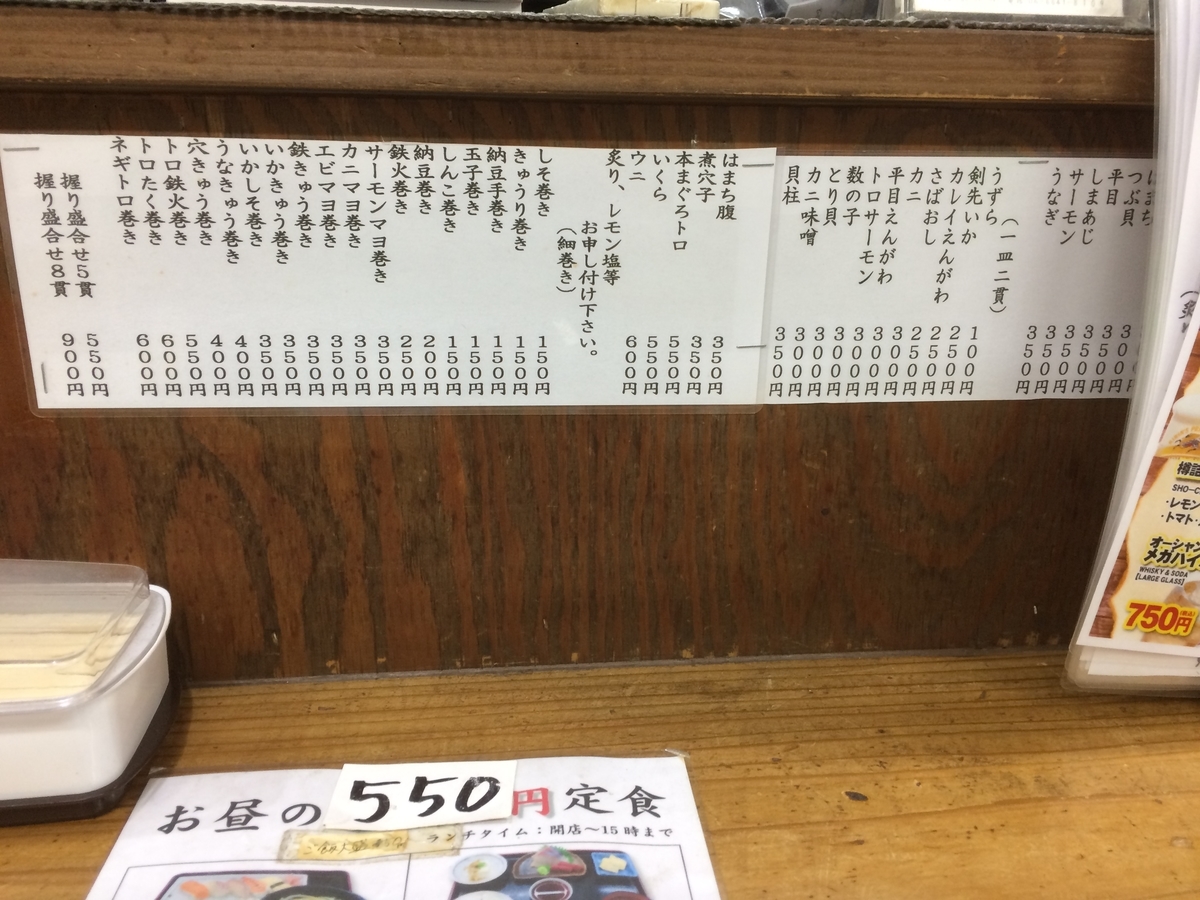 はまち
つぶ貝 350円
平目 350円
しまあじ 350円
サーモン 350円
うなぎ 350円
(一皿二貫)
うずら 100円
剣先いか 250円
カレイえんがわ 250円
さばおし 250円
カニ 300円
平目えんがわ 300円
トロサーモン 300円
数の子 300円
とり貝 300円
カニ味噌 300円
貝柱 350円
はまち腹 350円
煮穴子 350円
本まぐろトロ 550円
いくら 550円
ウニ 600円
炙り、レモン塩等
お申し付け下さい。
(細巻き)
しそ巻き 150円
きゅうり巻き 150円
納豆手巻き 150円
玉子巻き 150円
しんこ巻き 150円
納豆巻き 200円
鉄火巻き 250円
サーモンマヨ巻き 350円
カニマヨ巻き 350円
エビマヨ巻き 350円
鉄きゅう巻き 350円
いかきゅう巻き 350円
いかしそ巻き 350円
うなきゅう巻き 400円
穴きゅう巻き 400円
トロ鉄火巻き 550円
トロたく巻き 600円
ネギトロ巻き 600円
握り盛合せ5貫 550円
握り盛合せ8貫 900円
樽詰
SHO-C
・レモン
・トマト
オーシャン
メガハイ
WHISKY & SODA
[LARGE GLASS]
750円
お昼の550円定食
ランチタイム：開店〜15時まで